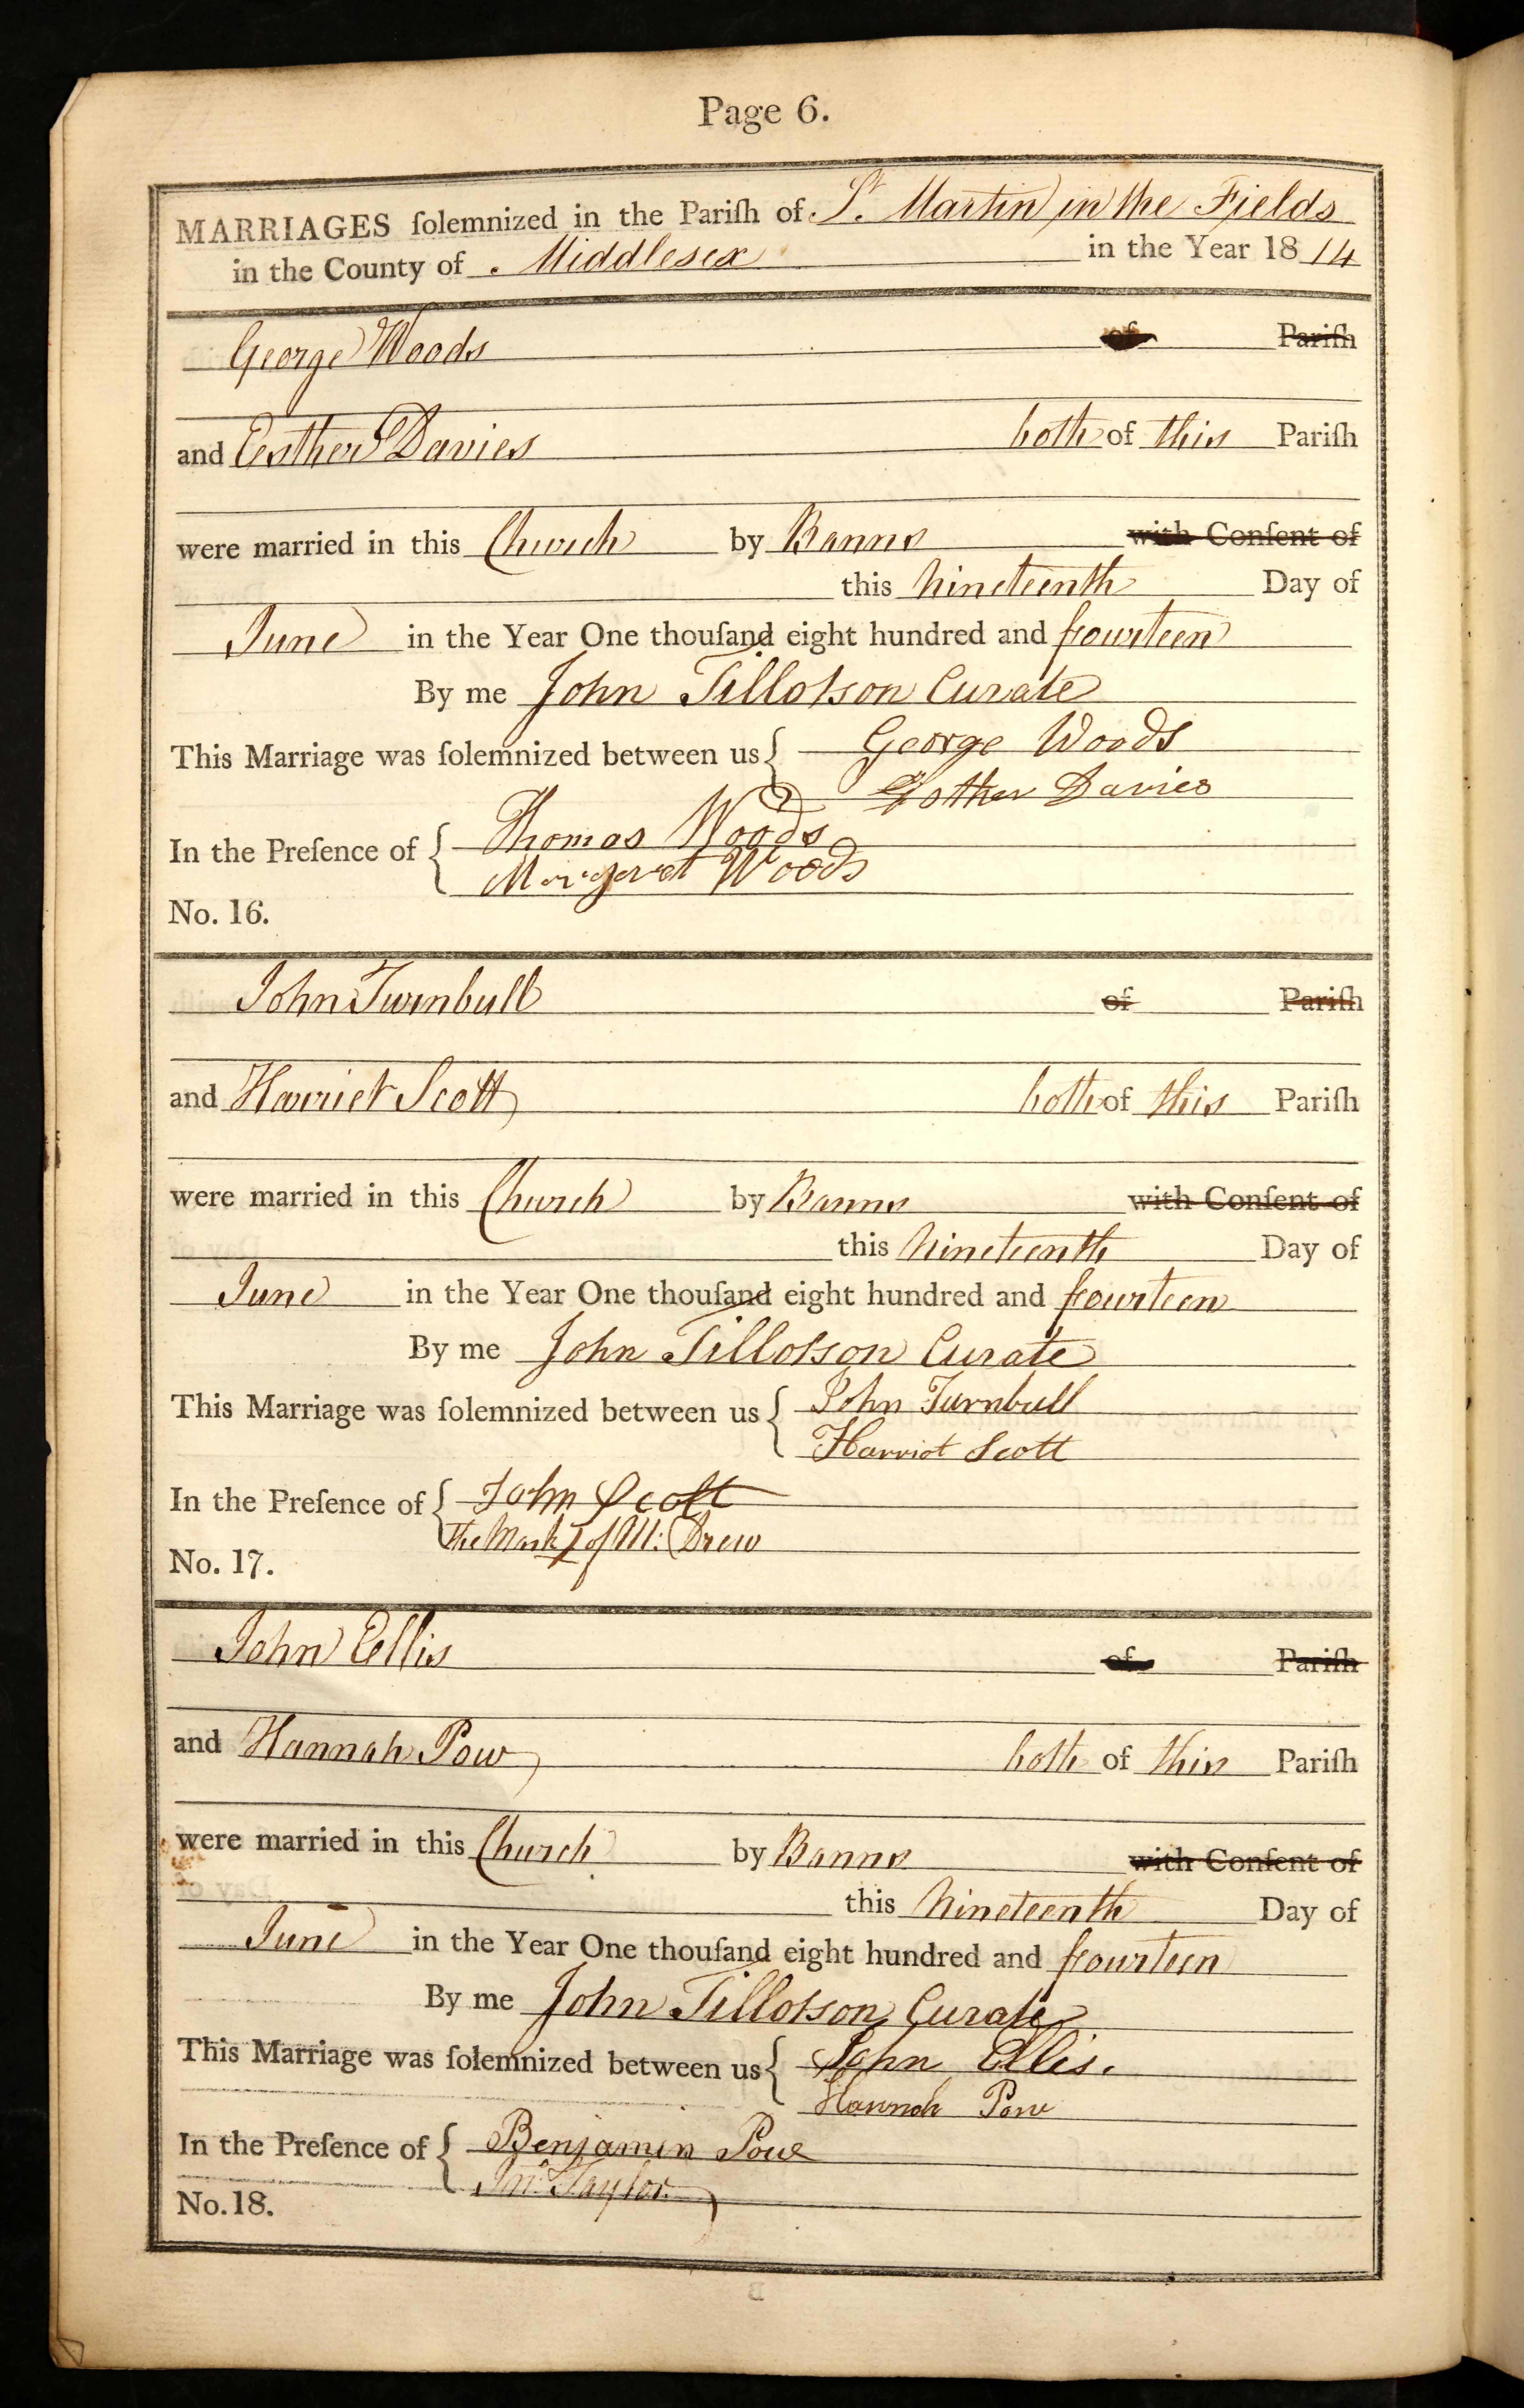 Page 6.
MARRIAGES ſolemnized in the Pariſh of St. Martin in the Fields
in the County of Middlesex in the Year 1814
George Woods of Pariſh
and Esther Davies both of this Pariſh
were married in this Church by Banns with Conſent of
this Nineteenth Day of
June in the Year One thouſand eight hundred and fourteen
By me John Tillotson Curate
This Marriage was ſolemnized between us { George Woods
Esther Davies
In the Preſence of { Thomas Woods
Margaret Woods
No. 16.
John Turnbull of Pariſh
and Harriet Scott both of this Pariſh
were married in this Church by Banns with Conſent of
this Nineteenth Day of
June in the Year One thouſand eight hundred and fourteen
By me John Tillotson Curate
This Marriage was ſolemnized between us { John Turnbull
Harriot Scott
In the Preſence of { John Scott
The Mark of M: Drew
No. 17.
John Ellis of Pariſh
and Hannah Pow both of this Pariſh
were married in this Church by Banns with Conſent of
this Nineteenth Day of
June in the Year One thouſand eight hundred and fourteen
By me John Tillotson Curate
This Marriage was ſolemnized between us { John Ellis.
Hannah Pow
In the Preſence of { Benjamin Powe
Jno. Taylor
No. 18.